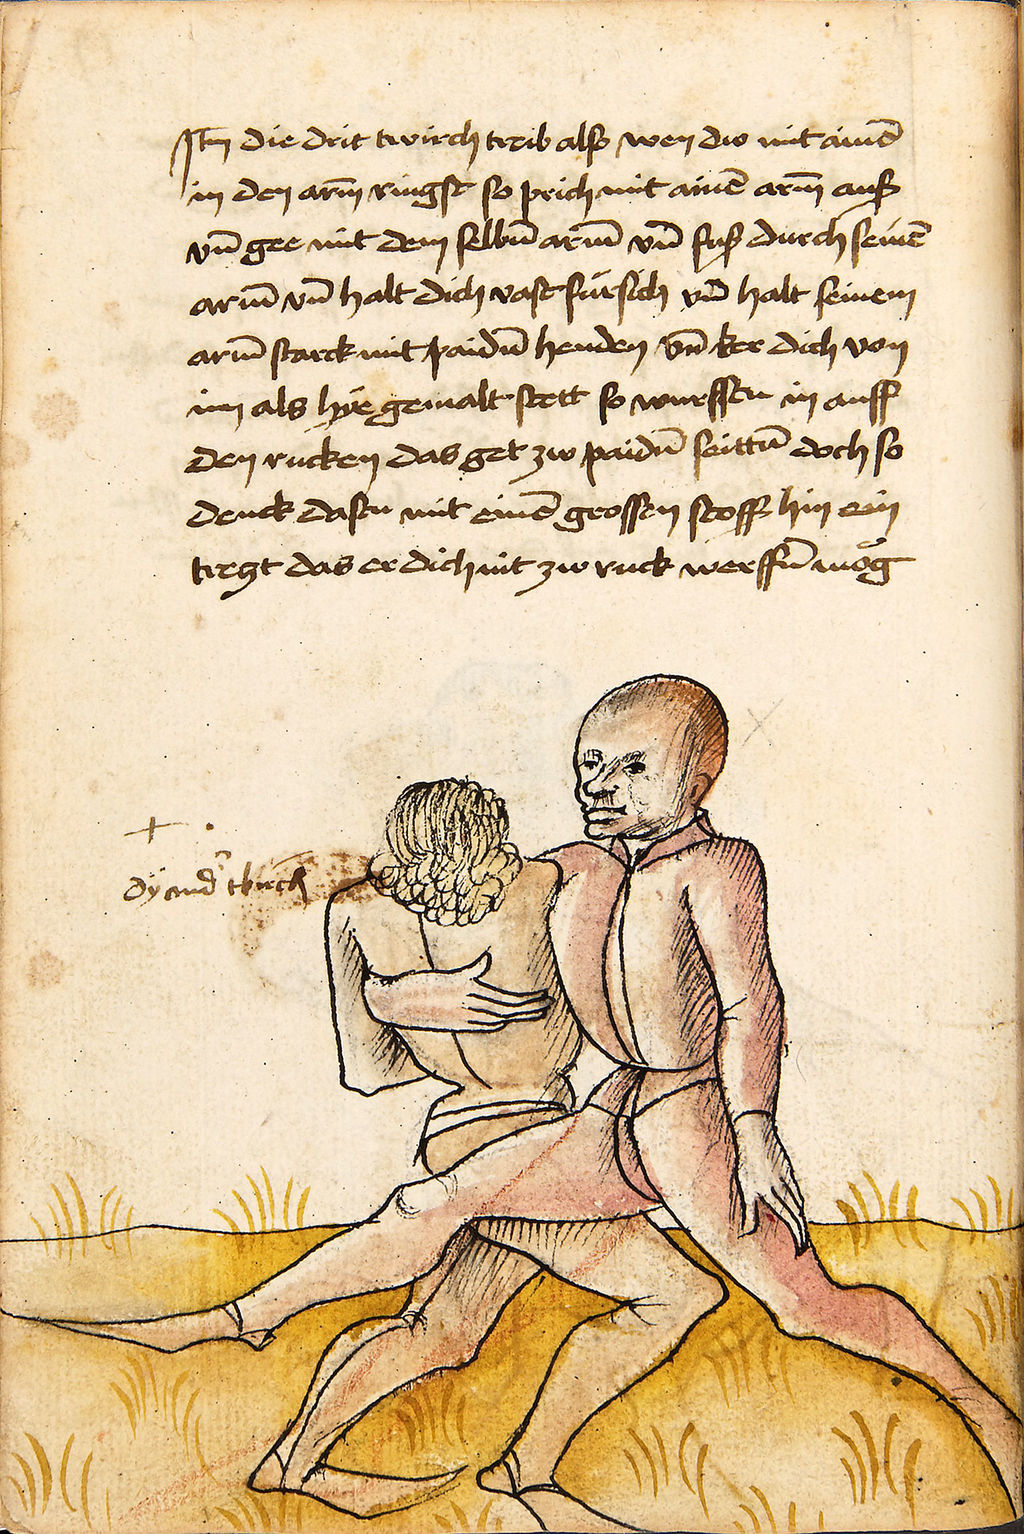 Itm die drit twirch treib also wen dw mit ainē
in den arm̄ ringst so prich mit ainē arm̄ auß
vn̄ gee mit dem selbn̄ arm̄ vn̄ fuß durch seinē
arm̄ vn̄ halt dich vast fürsich vn̄ halt seinem
arm̄ starck mit paidn̄ henden vn̄ ker dich von
im als hye gemalt stett so wurffstu in auff
den rucken das get zw paidn̄ seittn̄ doch so
denck dastu mit einē grossen stoss hin ein
tregt das er dich nit zw ruck werffn̄ mög
dÿ twirch